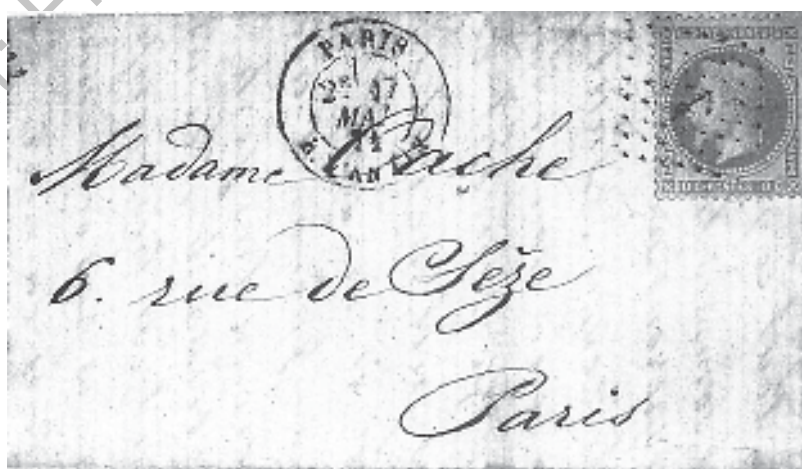 PARIS
2E 17
MAI
71
Madame Cache
6. rue de Sèze
Paris